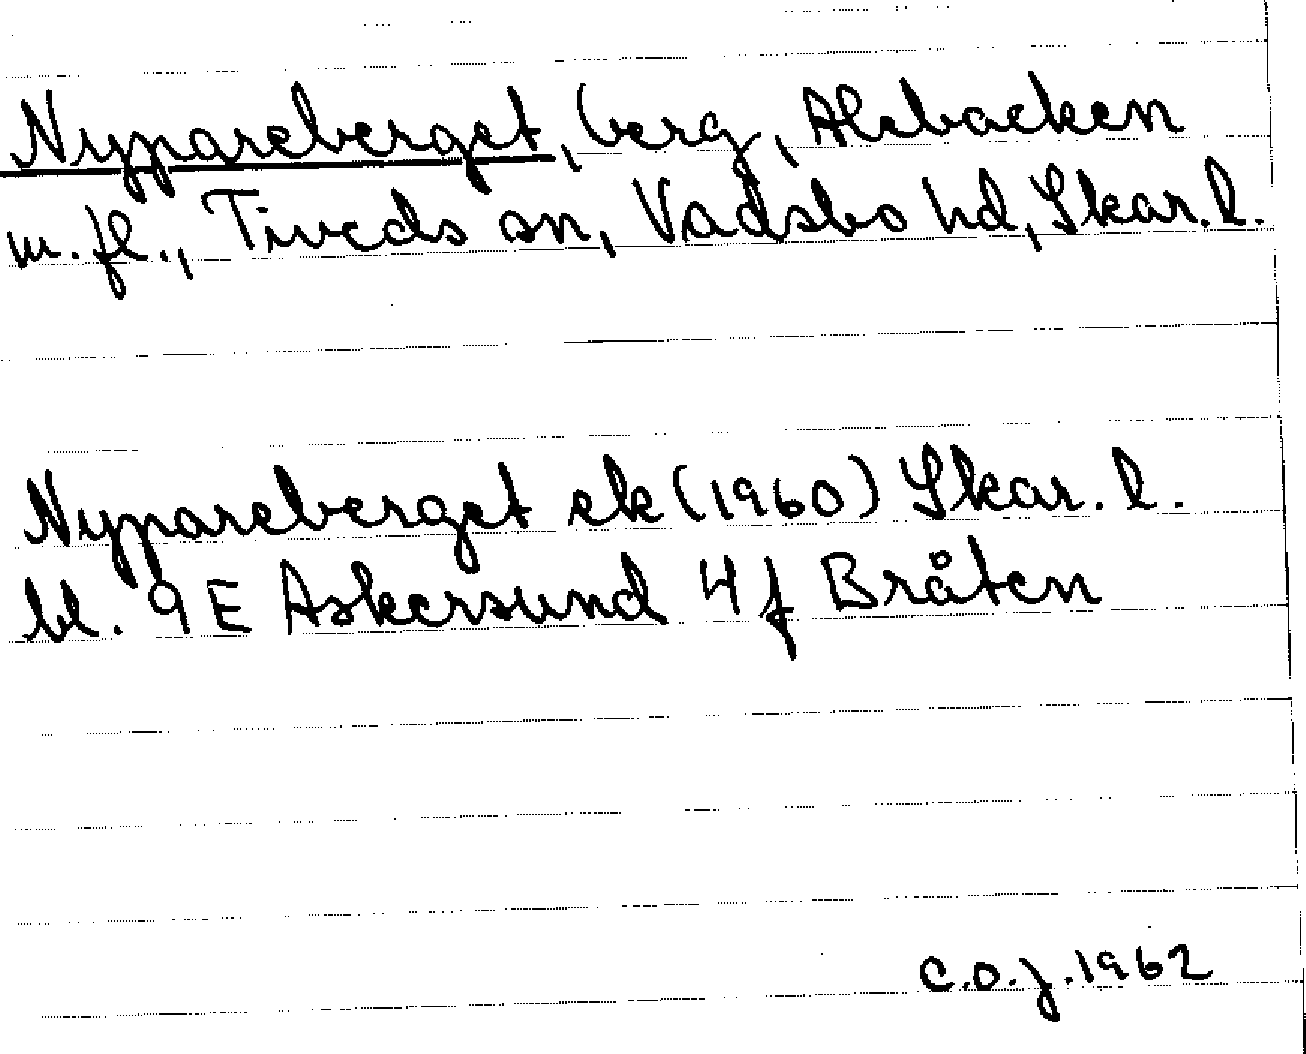 Nypareberget, berg, Alebacken
m.fl., Tiveds sn, Vadsbo hd, Skar.l.
Nypareberget ek (1960) Skar. l.
bl. 9 E Askersund 4 f Bråten
C.O.J. 1962